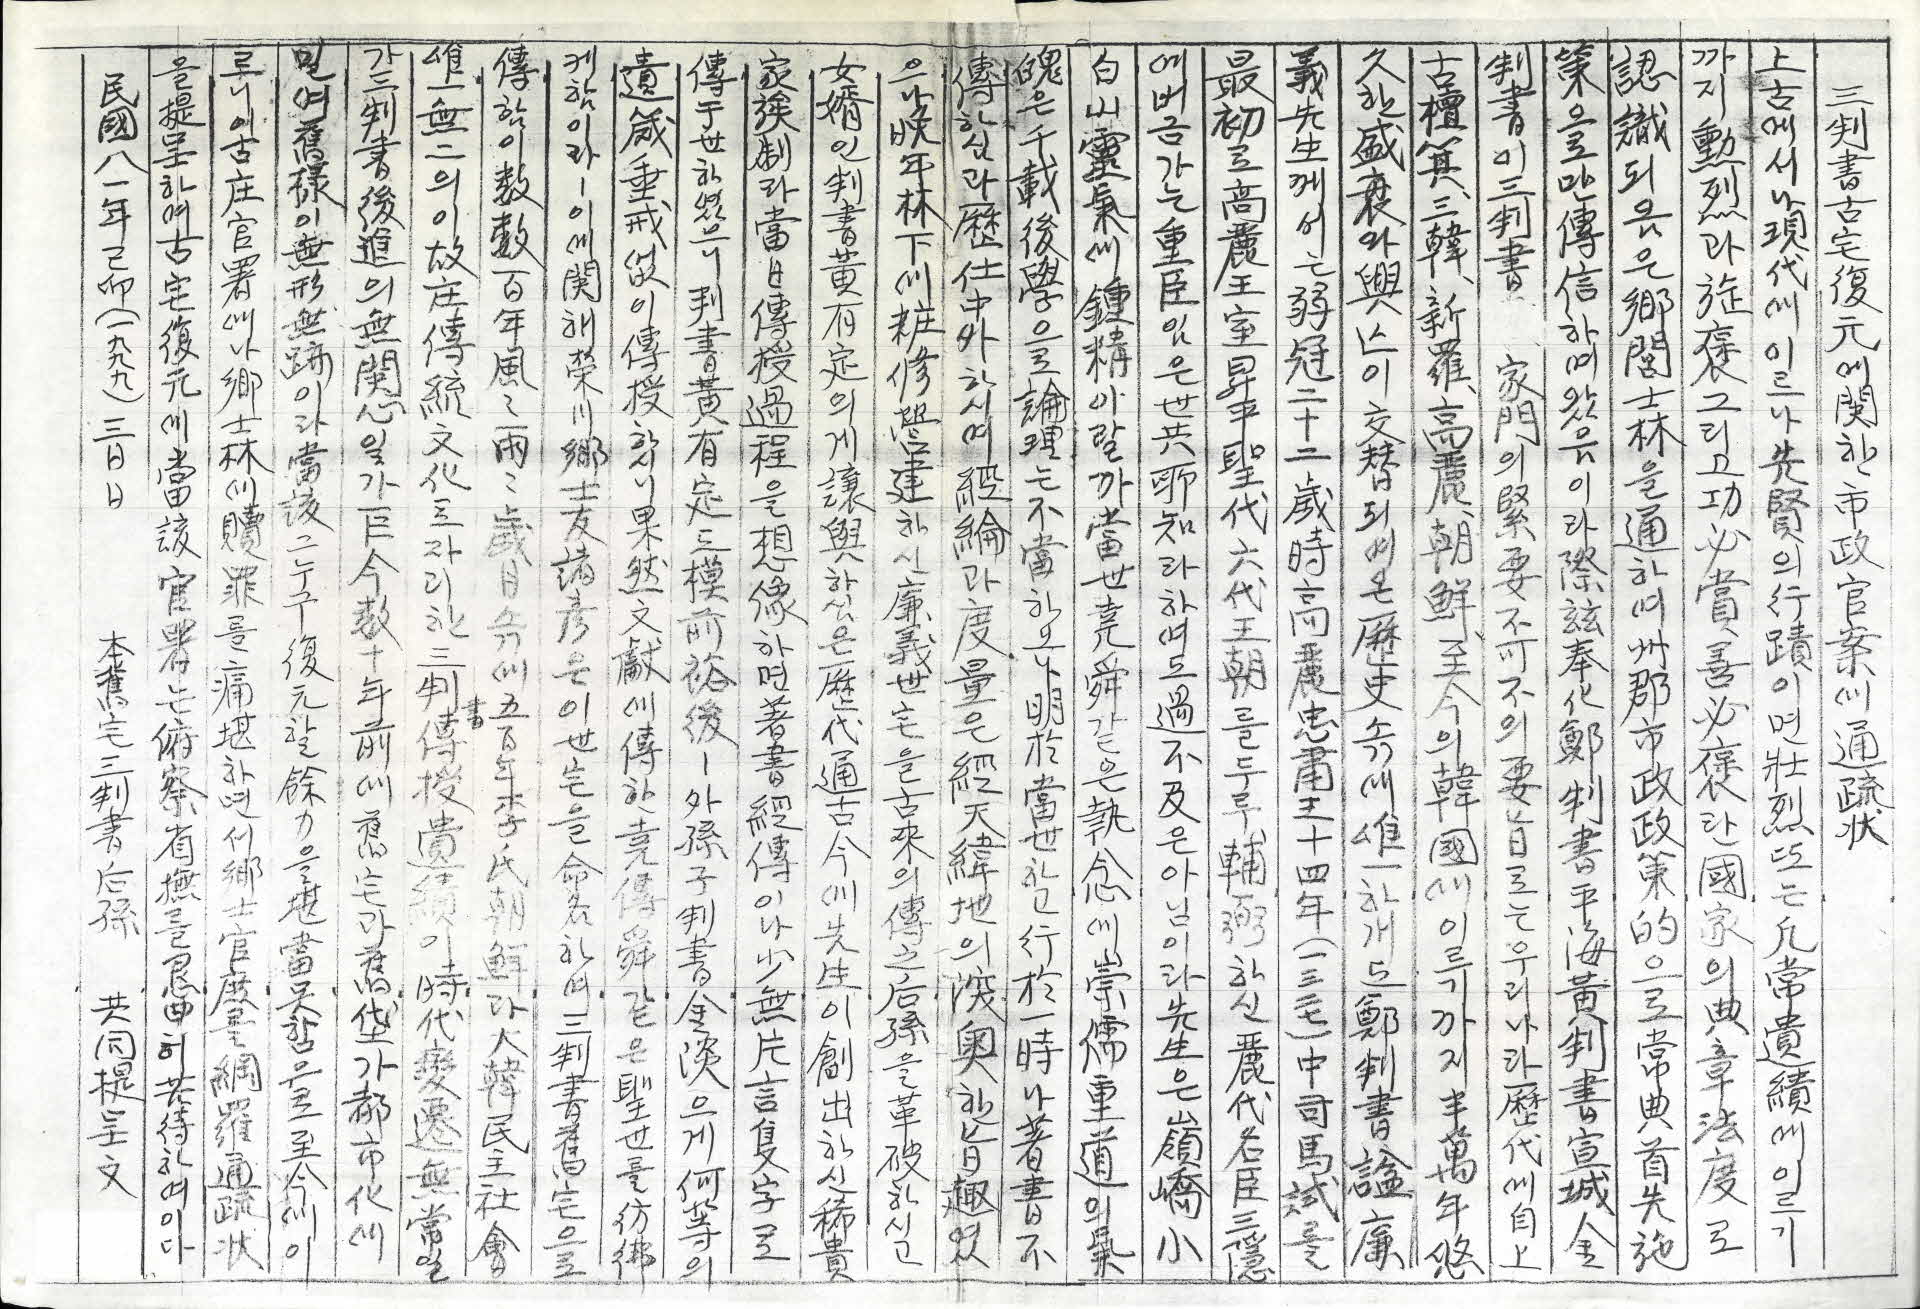 三判書古宅復元에關한市政官案에通疏狀
上古에서나現代에이르나先賢의行蹟이며壯烈또는凡常遺績에이르기
까지勳烈과旌褒그리고功必賞善必褒란國家의典章法度로
認識되음은鄕閭士林을通하여州郡市政政策的으로常典首先施
策으로만傳信하며왔음이라際玆奉化鄭判書平海黃判書宣城金
判書이三判書 家門의緊要不可不의要旨로는우리나라歷代에自上
古檀箕、三韓、新羅、高麗、朝鮮、至今의韓國에이르기까지半萬年悠
久한盛衰와興亡이交替되여온歷史속에唯一하개도鄭判書諡廉
義先生께서는弱冠二十二歲時高麗忠肅王十四年(一三二七)中司馬試를
最初로高麗王室昇平聖代六代王朝를두루輔弼하신麗代名臣三隱
에버금가는重臣임은世共所知라하여도過不及은아님이라先生은嶺嶠小
白山靈氣에鍾精이랄까當世堯舜같은執念에崇儒重道의氣
魄은千載後學으로論理는不當하오나明於當世하고行於一時나著書不
傳하심과歷仕中外하시며經綸과度量은經天緯地의深奧한旨趣였
으나晩年林下에粧修營建하신廉義世宅을古來의傳之后孫을革破하시고
女婿인判書黃有定의게讓與하심은歷代通古今에先生이創出하신稀貴
家族制라當日傳授過程을想像하면著書經傳이나少無片言隻字로
傳于世하였으니判書黃有定도模前裕後ㅣ外孫子判書金淡으게何等의
遺箴垂戒없이傳授하시니果然文獻에傳한堯傳舜같은聖世를彷彿
케함이라ㅣ이에關해榮川鄕士友諸彦은이世宅을命名하여三判書舊宅으로
傳함이數數百年風〻雨〻歲月속에五百年李氏朝鮮과大韓民主社會
唯一無二의이故庄傳統文化로자리한三判書傳授遺績이時代變遷無常일
가三判書後進의無關心일가距今數十年前에舊宅과舊垈가都市化에
밀여舊樣이無形無跡이라當該그누구復元할餘力을堪當못함으로至今에이
르니이古庄官署에나鄕士林에贖罪를痛堪하면서鄕士官廳을網羅通疏狀
을提呈하여古宅復元에當該官署는俯察省撫를懇曲히共待하여이다
民國八一年己卯(一九九九)三月 日 本舊宅三判書后孫 共同提言文